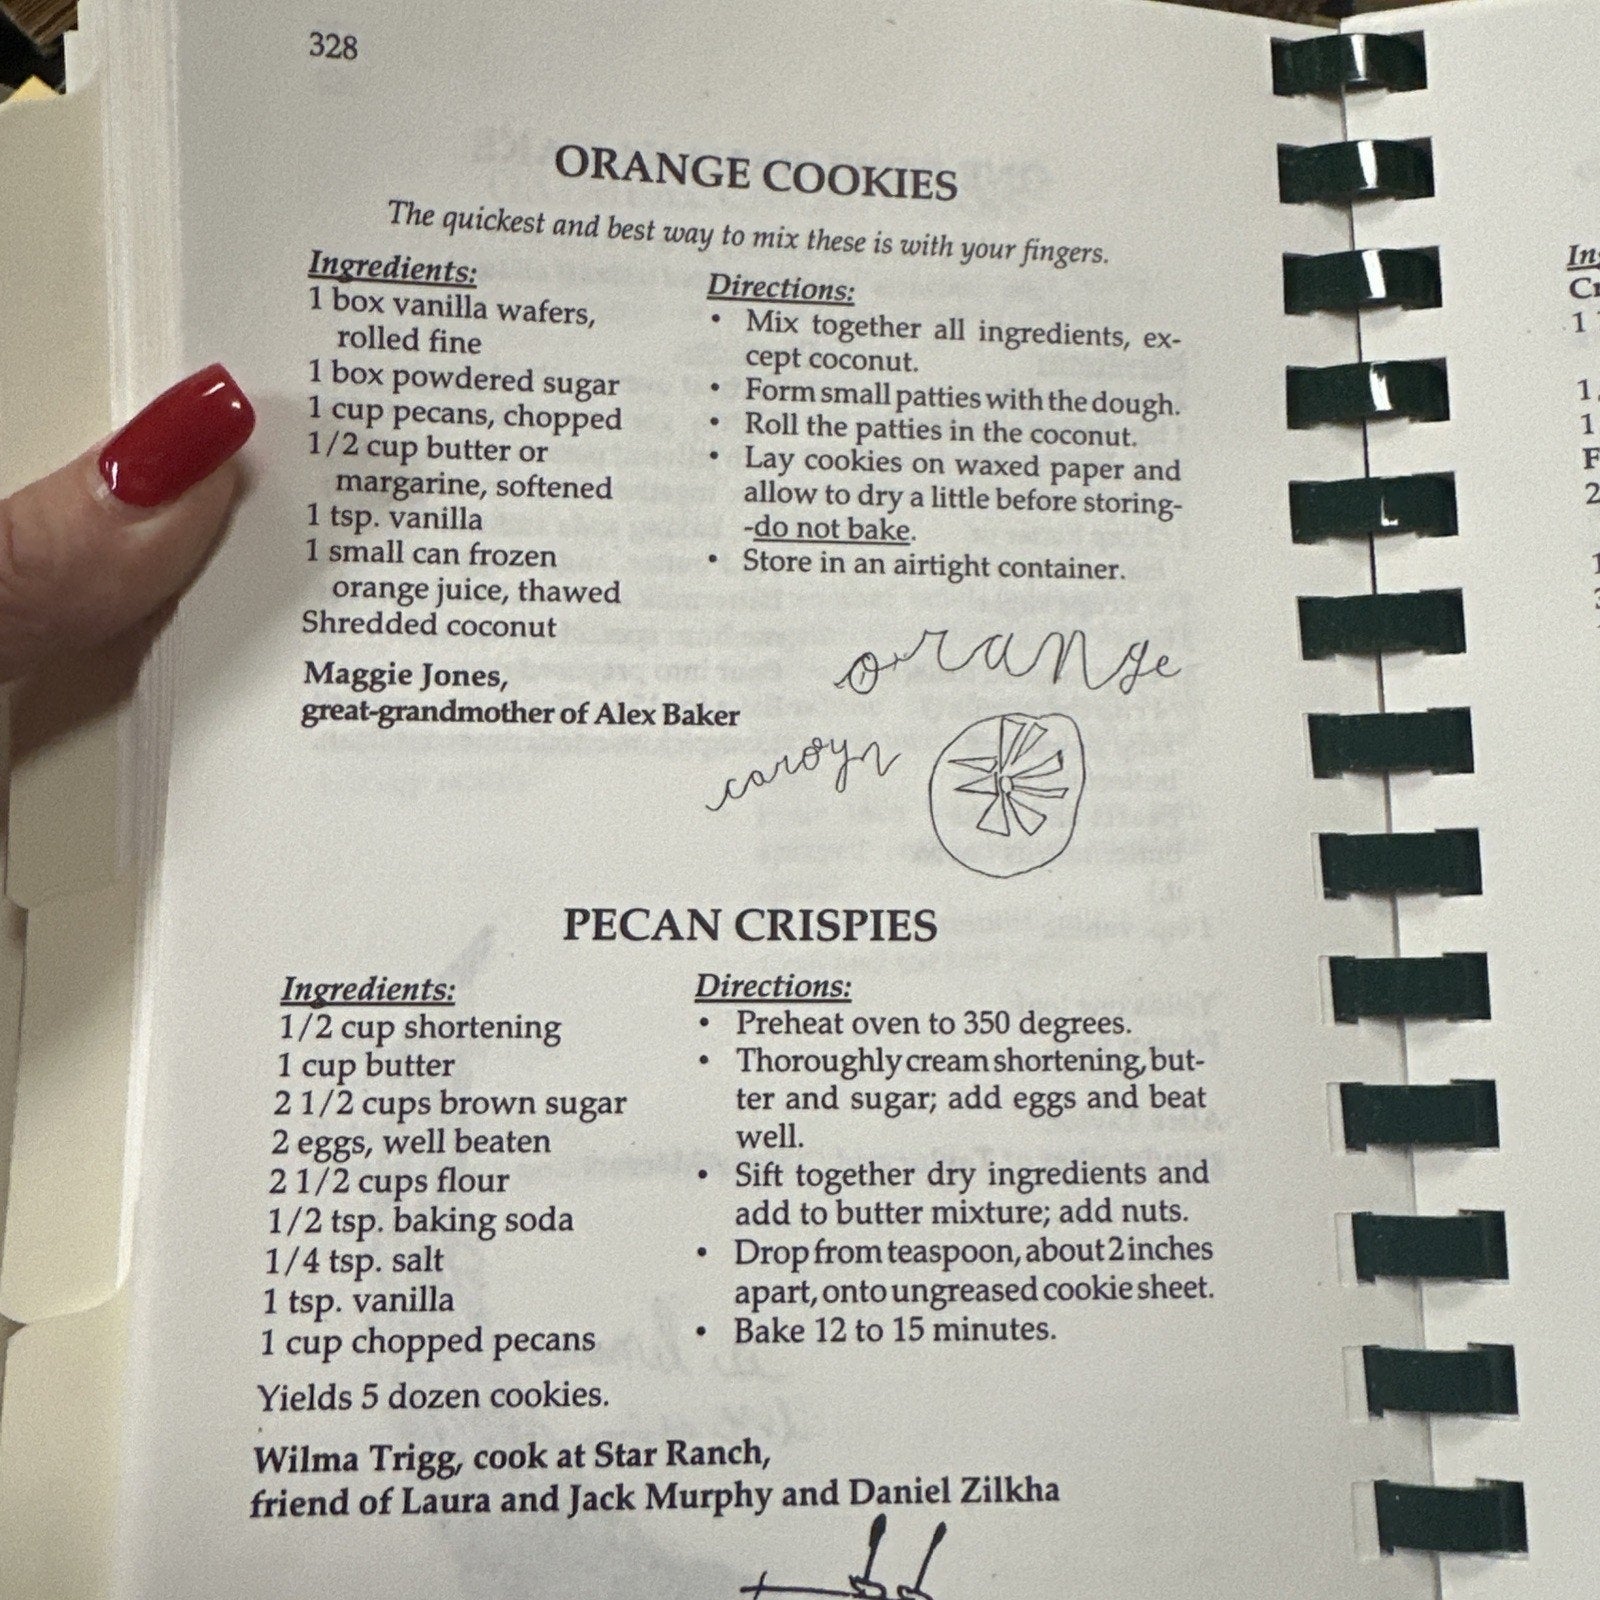 328
ORANGE COOKIES
The quickest and best way to mix these is with your fingers.
Ingredients:
1 box vanilla wafers,
rolled fine
1 box powdered sugar
1 cup pecans, chopped
1/2 cup butter or
margarine, softened
1 tsp. vanilla
1 small can frozen
orange juice, thawed
Shredded coconut
Maggie Jones,
great-grandmother of Alex Baker
Directions:
• Mix together all ingredients, ex-
cept coconut.
• Form small patties with the dough.
• Roll the patties in the coconut.
• Lay cookies on waxed paper and
allow to dry a little before storing-
-do not bake.
• Store in an airtight container.
orange
caroyn
PECAN CRISPIES
Ingredients:
1/2 cup shortening
1 cup butter
2 1/2 cups brown sugar
2 eggs, well beaten
2 1/2 cups flour
1/2 tsp. baking soda
1/4 tsp. salt
1 tsp. vanilla
1 cup chopped pecans
Yields 5 dozen cookies.
Directions:
• Preheat oven to 350 degrees.
• Thoroughly cream shortening, but-
ter and sugar; add eggs and beat
well.
• Sift together dry ingredients and
add to butter mixture; add nuts.
• Drop from teaspoon, about 2 inches
apart, onto ungreased cookie sheet.
• Bake 12 to 15 minutes.
Wilma Trigg, cook at Star Ranch,
friend of Laura and Jack Murphy and Daniel Zilkha